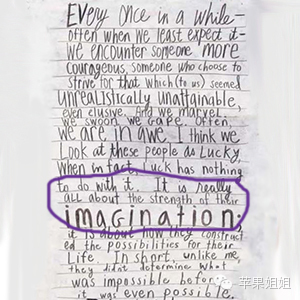 EVERY once in a while-
often when we least expect it-
we encounter someone more
courageous, someone who choose to
strive for that which (to us) seemed
unrealistically unattainable,
even elusive. And we marvel.
we swoon. we gape. Often,
we are in awe. I think we
Look at these people as Lucky,
when in fact, Luck has nothing
to do with it. It is really
all about the strength of their
imagination;
it is about how they construct
ed the possibilities for their
Life. In short, unlike me,
they didnt determine what
was impossible before
it was even possible.
苹果姐姐